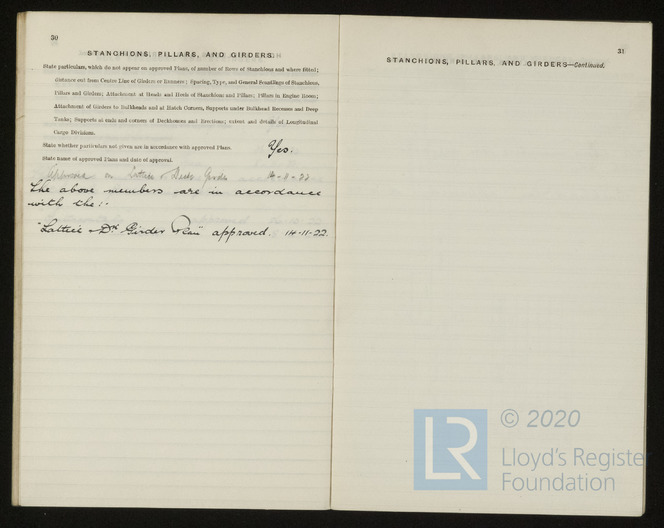 30
STANCHIONS, PILLARS, AND GIRDERS.
State particulars, which do not appear on approved Plans, of number of Rows of Stanchions and where fitted;
distance out from Centre Line of Girders or Runners; Spacing, Type, and General Scantlings of Stanchions,
Pillars and Girders; Attachment at Heads and Heels of Stanchions and Pillars; Pillars in Engine Room;
Attachment of Girders to Bulkheads and at Hatch Corners, Supports under Bulkhead Recesses and Deep
Tanks; Supports at ends and corners of Deckhouses and Erections; extent and details of Longitudinal
Cargo Divisions.
State whether particulars not given are in accordance with approved Plans. Yes.
State name of approved Plans and date of approval.
Approved on Lattice & Deck Girder 14-11-22
The above members are in accordance
with the:-
"Lattice & Dk Girder Plan" approved. 14-11-22.
31
STANCHIONS, PILLARS, AND GIRDERS—Continued.
LR
© 2020
Lloyd's Register
Foundation